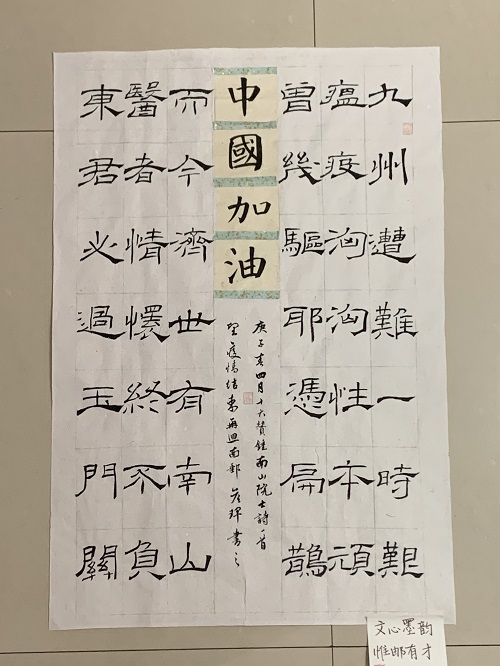 九州遭難一時艱
瘟疫洶洶性本頑
曾幾驅耶憑扁鵲
中國加油
庚子春四月十六贊鍾南山院士詩一首
望疫情结束再迴南郵 書之
而今濟世有南山
醫者情懷終不負
東君必過玉門關
文心墨韵
惟邮有才